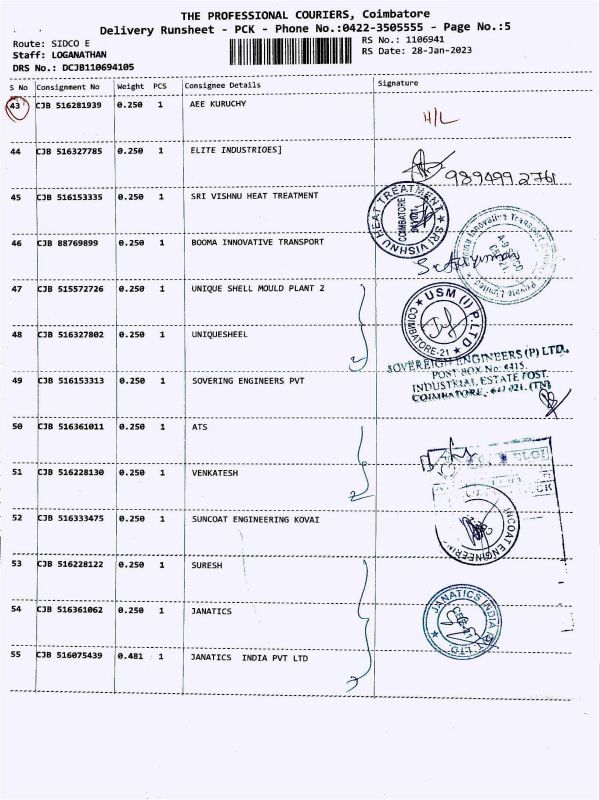 THE PROFESSIONAL COURIERS, Coimbatore
Delivery Runsheet - PCK - Phone No.:0422-3505555 - Page No.:5
Route: SIDCO E
RS No.: 1106941
Staff: LOGANATHAN
RS Date: 28-Jan-2023
DRS No.: DCJB110694105
S No Consignment No Weight PCS Consignee Details Signature
43 CJB 516281939 0.250 1 AEE KURUCHY H/L
44 CJB 516327785 0.250 1 ELITE INDUSTRIOES]
9894992761
45 CJB 516153335 0.250 1 SRI VISHNU HEAT TREATMENT
SRI VISHNU HEAT TREATMENT
COIMBATORE
46 CJB 88769899 0.250 1 BOOMA INNOVATIVE TRANSPORT
Innovative Transport
Private Limited
47 CJB 515572726 0.250 1 UNIQUE SHELL MOULD PLANT 2
USM (I) P.LTD
COIMBATORE-21
48 CJB 516327802 0.250 1 UNIQUESHEEL
2
SOVEREIGN ENGINEERS (P) LTD.,
POST BOX No: 6415,
INDUSTRIAL ESTATE POST,
COIMBATORE - 641 021. (TN)
49 CJB 516153313 0.250 1 SOVERING ENGINEERS PVT
50 CJB 516361011 0.250 1 ATS
51 CJB 516228130 0.250 1 VENKATESH
2
52 CJB 516333475 0.250 1 SUNCOAT ENGINEERING KOVAI
53 CJB 516228122 0.250 1 SURESH
54 CJB 516361062 0.250 1 JANATICS
JANATICS INDIA PVT LTD
CBE-21
55 CJB 516075439 0.481 1 JANATICS INDIA PVT LTD
3